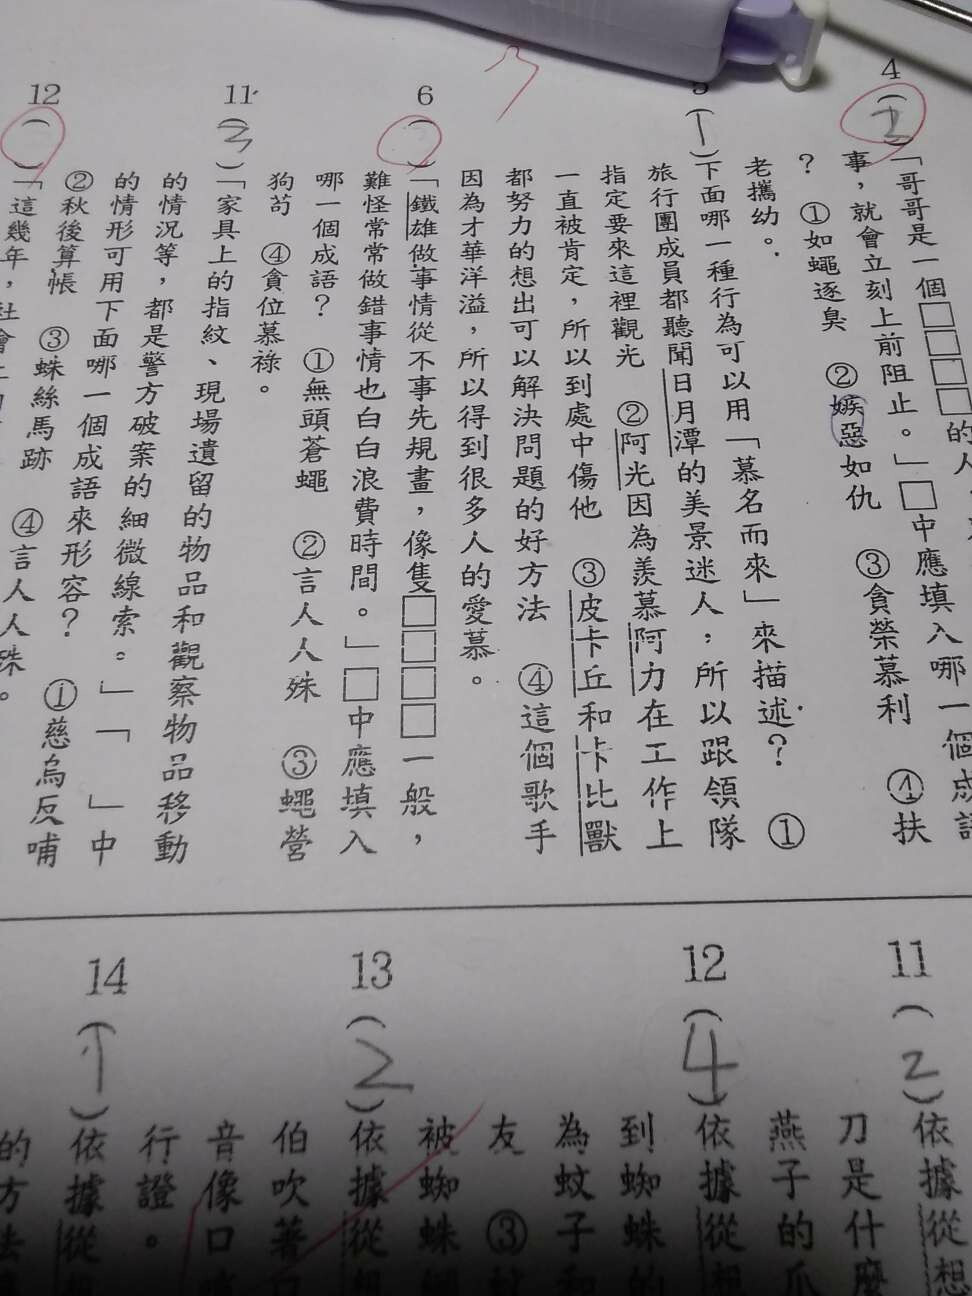 4
(2)「哥哥是一個□□□□的人,
事，就會立刻上前阻止。」□中應填入哪一個成語
？ ①如蠅逐臭 ②嫉惡如仇 ③貪榮慕利 ④扶
老攜幼。
5
(1)下面哪一種行為可以用「慕名而來」來描述？ ①
旅行團成員都聽聞日月潭的美景迷人，所以跟領隊
指定要來這裡觀光 ②阿光因為羨慕阿力在工作上
一直被肯定，所以到處中傷他 ③皮卡丘和卡比獸
都努力的想出可以解決問題的好方法 ④這個歌手
因為才華洋溢，所以得到很多人的愛慕。
6
( )「鐵雄做事情從不事先規畫，像隻□□□□一般，
難怪常常做錯事情也白白浪費時間。」□中應填入
哪一個成語？ ①無頭蒼蠅 ②言人人殊 ③蠅營
狗苟 ④貪位慕祿。
11
(3)「家具上的指紋、現場遺留的物品和觀察物品移動
的情況等，都是警方破案的細微線索。」「 」中
的情形可用下面哪一個成語來形容？ ①慈烏反哺
②秋後算帳 ③蛛絲馬跡 ④言人人殊。
12
( )「這幾年，社會上
11
(2)依據從想
刀是什麼
燕子的爪
12
(4)依據從想
到蜘蛛的
為蚊子和
友 ③
被蜘蛛
13
(2)依據從想
伯吹著口
音像口
行證。
14
(1)依據從
的方法